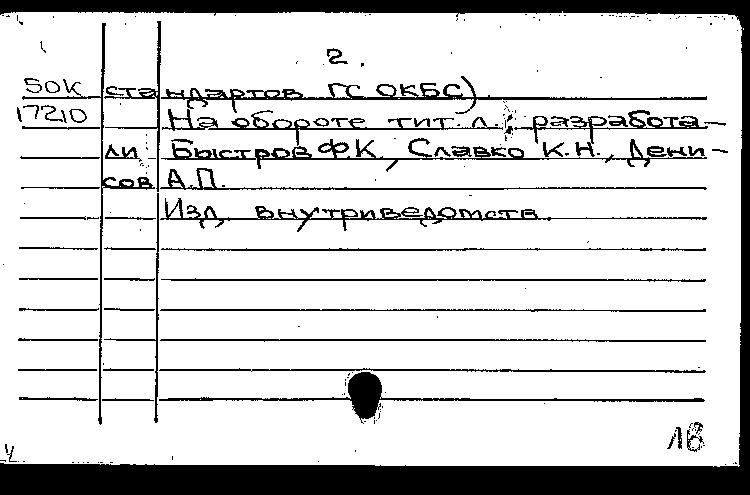 2.
50К стандартов ГС ОКБС)
17210 На обороте тит. л.: разработа-
ли Быстров Ф.К., Славко К.Н., Дени-
сов А.П.
Изд. внутриведомств.
18